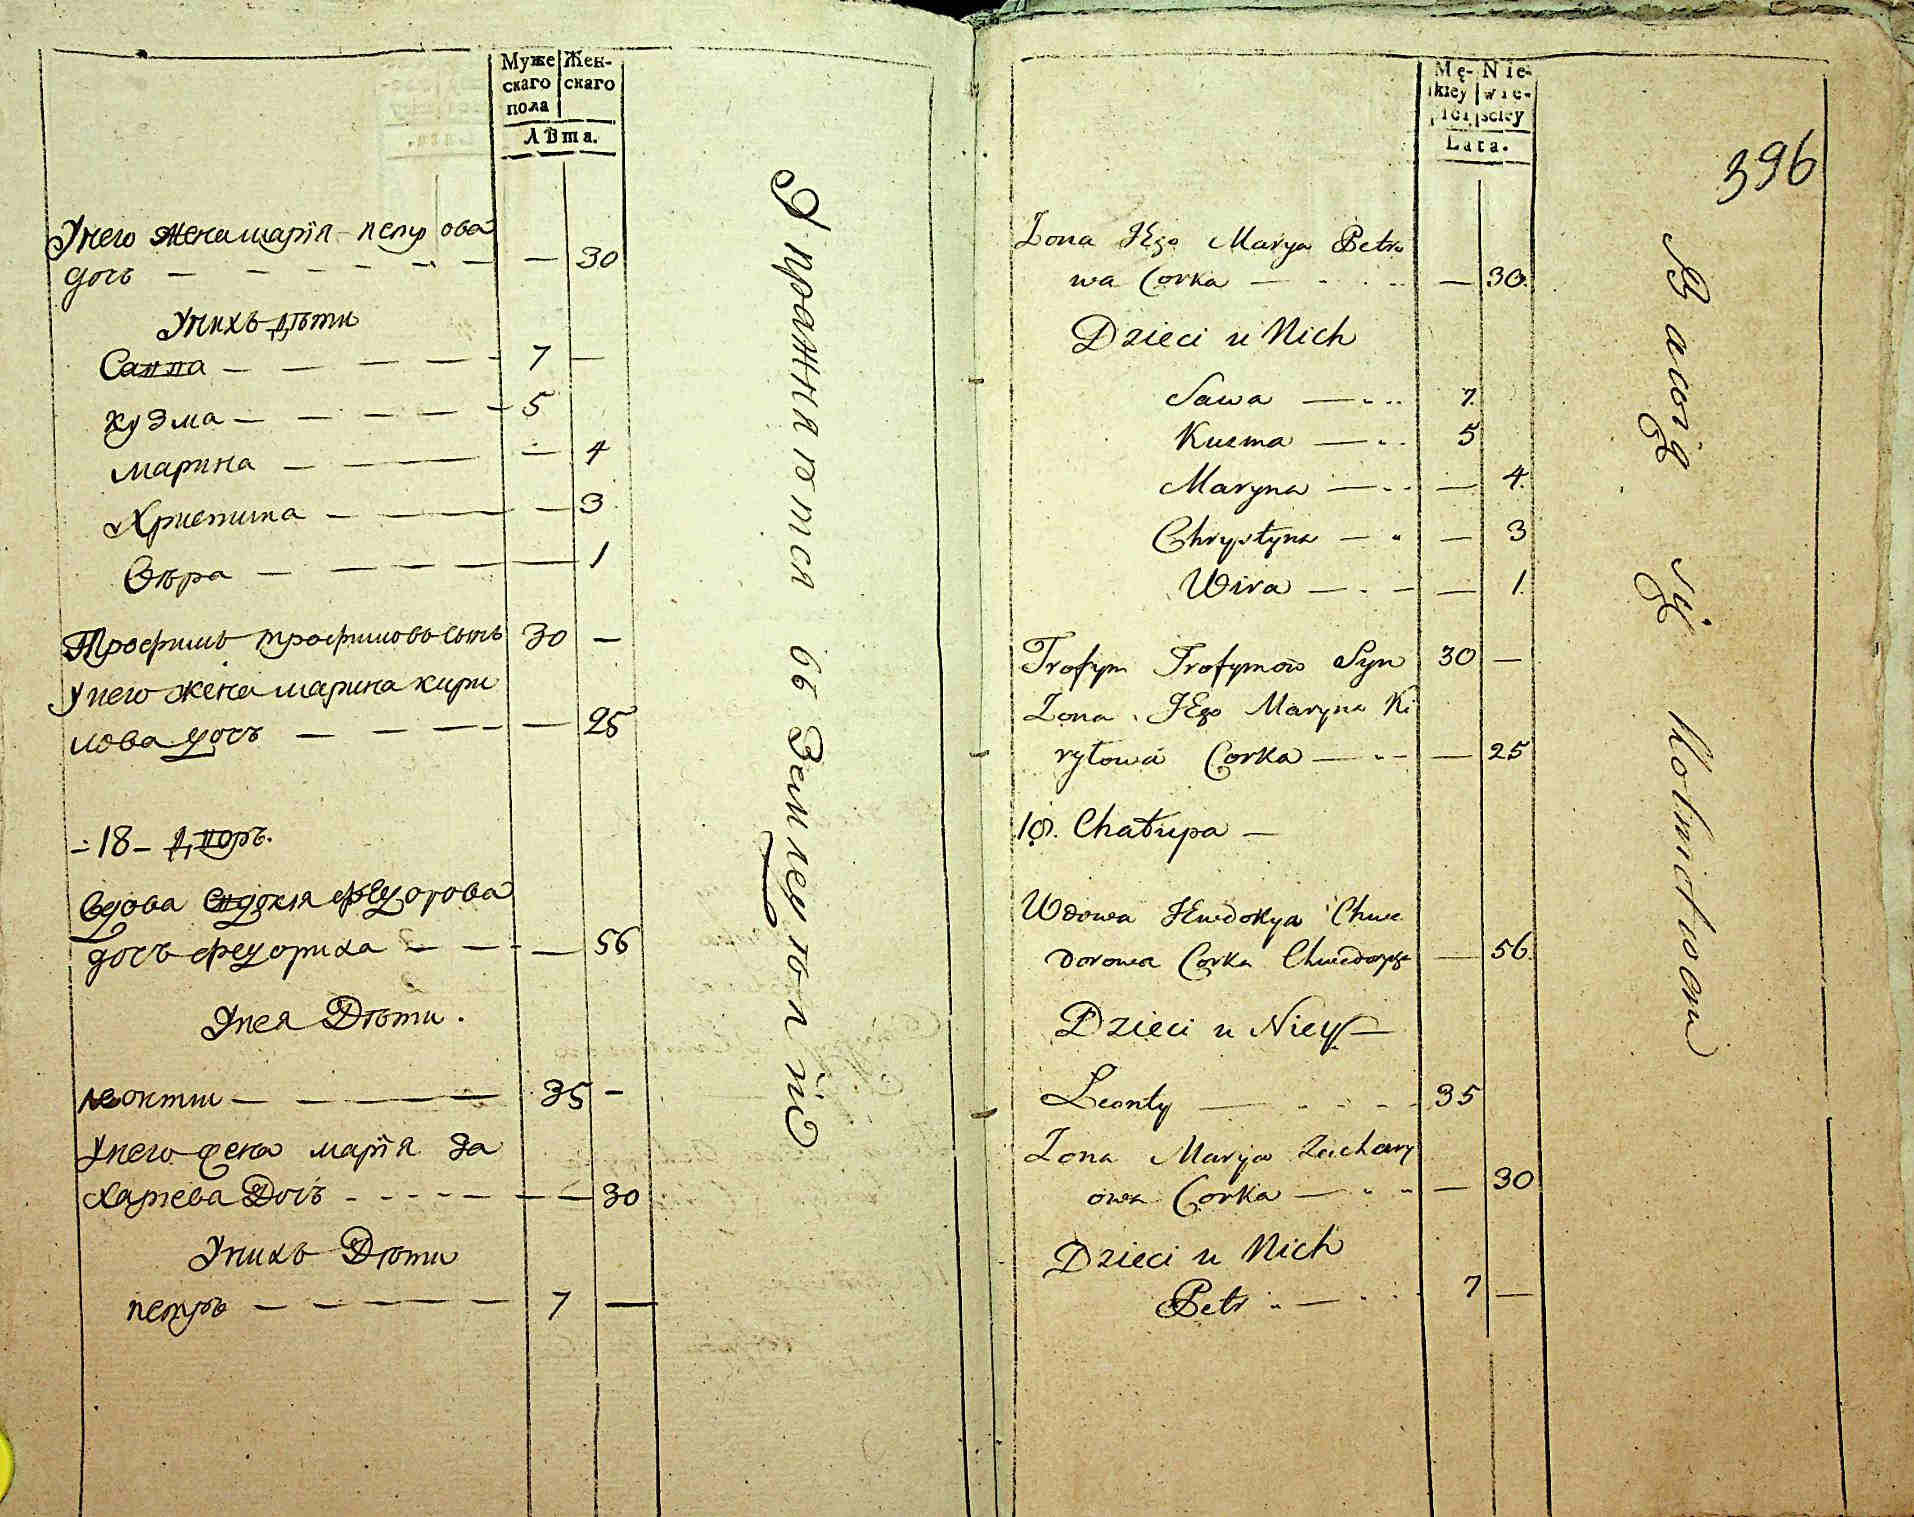 Муже
скаго
пола
Жен-
скаго
Лѣта.
Унего жена марїя петрова
дочь — 30
Унихъ дѣти
Савва — 7 —
кузма — 5
марина — 4
Христина — 3
Вѣра — 1
Трофимъ трофимовъ сынъ 30 —
Унего жена марина кири
лова дочь — 25
18 дворъ.
Вдова Евдокия федорова
дочь федориха — 56
Унея Дѣти.
леонтии — 35 —
Унего жена марїя За
харїева Дочь — 30
Унихъ Дѣти
петръ — 7 —
Упражняется въ Земледѣлїи
Mę-
kiey
płci
Nie-
wie-
sciey
Lata.
396
Zona JEgo Marya Petro
wa Corka — 30.
Dzieci u Nich
Sawa — 7.
Kuzma — 5
Maryna — 4.
Chrystyna — 3
Wira — 1.
Trofym Trofymow Syn 30 —
Zona JEgo Maryna Ki
ryłowa Corka — 25
18. Chałupa —
Wdowa JEwdokya Chwe
dorowa Corka Chwedorycha — 56.
Dzieci u Niey —
Leonty — 35
Zona Marya Zachary
owa Corka — 30
Dzieci u Nich
Petr — 7 —
Bawią się Rolnictwem